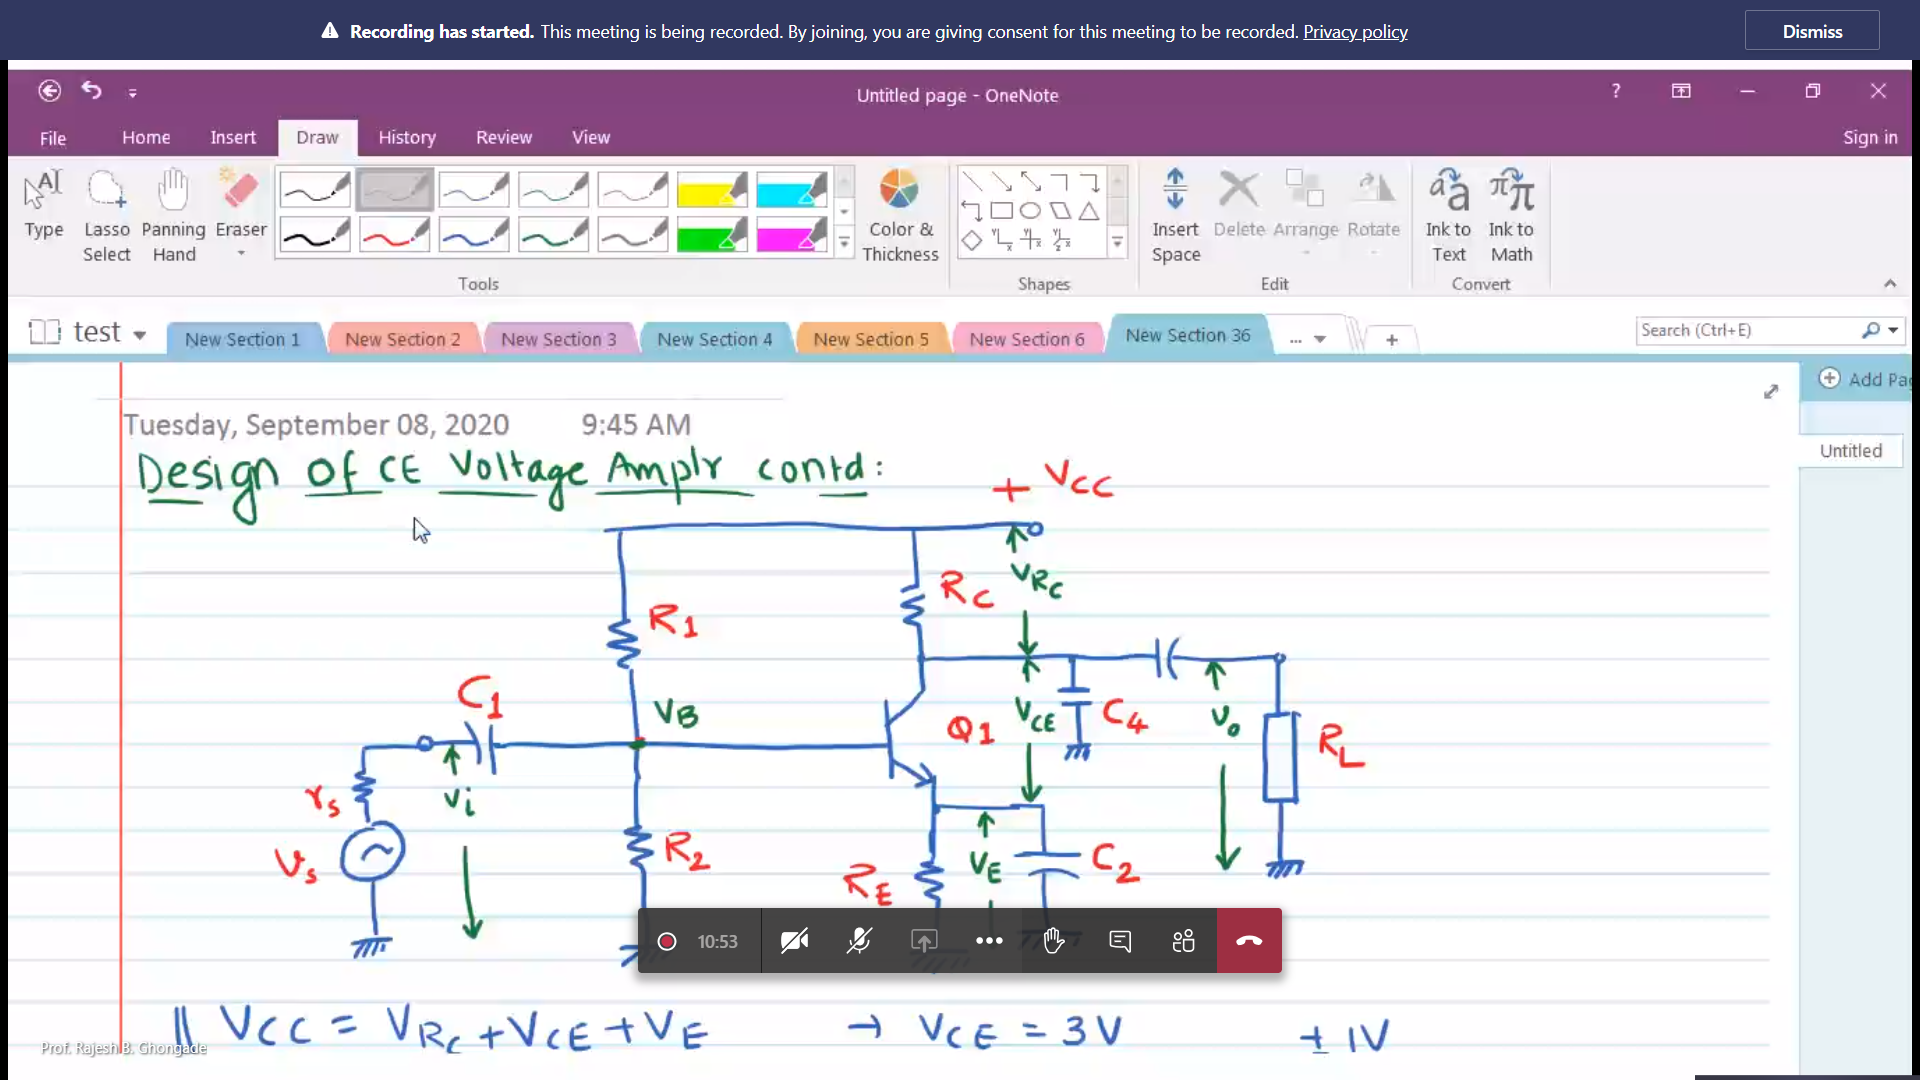 Recording has started. This meeting is being recorded. By joining, you are giving consent for this meeting to be recorded. Privacy policy
Dismiss
Untitled page - OneNote
?
File Home Insert Draw History Review View
Sign in
Type Lasso Select Panning Hand Eraser
Color & Thickness
Insert Space Delete Arrange Rotate
Ink to Text Ink to Math
Tools Shapes Edit Convert
test New Section 1 New Section 2 New Section 3 New Section 4 New Section 5 New Section 6 New Section 36 ... +
Search (Ctrl+E)
Add Pa
Untitled
Tuesday, September 08, 2020 9:45 AM
Design of CE Voltage Amplr contd:
+ VCC
RC VRC
R1
C1 VB Q1 VCE C4 Vo RL
rs Vi
Vs R2 RE VE C2
10:53
|| VCC = VRC + VCE + VE → VCE = 3V ± 1V
Prof. Rajesh B. Ghongade